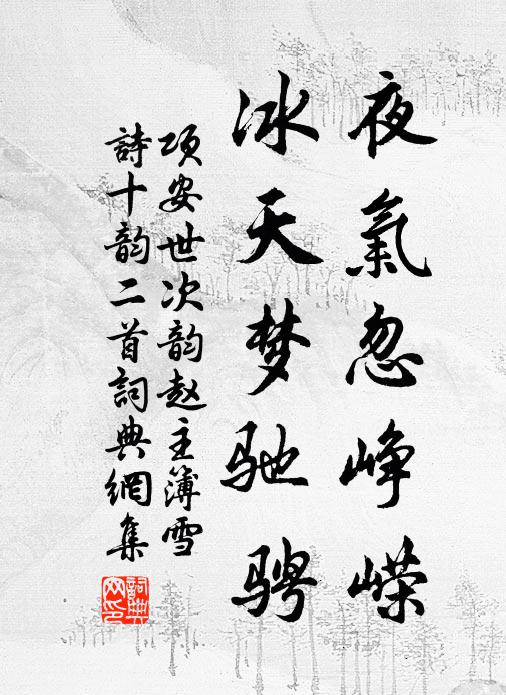 夜氣忽峥嵘
冰天梦驰骋
项安世次韵赵主簿雪
詩十韵二首詞典網集